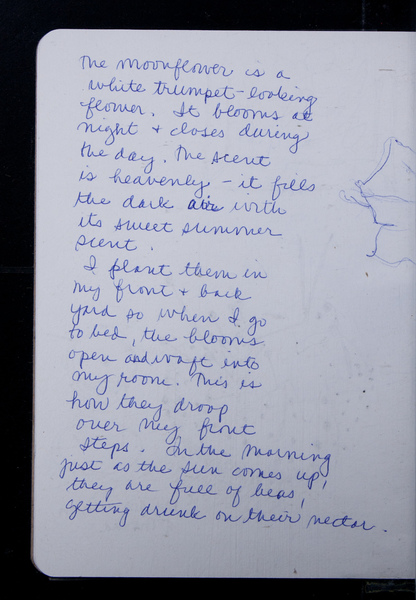 The moonflower is a
white trumpet-looking
flower. It blooms at
night + closes during
the day. The scent
is heavenly - it fills
the dark air with
its sweet summer
scent.
I plant them in
my front + back
yard so when I go
to bed, the blooms
open and waft into
my room. This is
how they droop
over my front
steps. In the morning
just as the sun comes up,
they are full of bees,
getting drunk on their nectar.